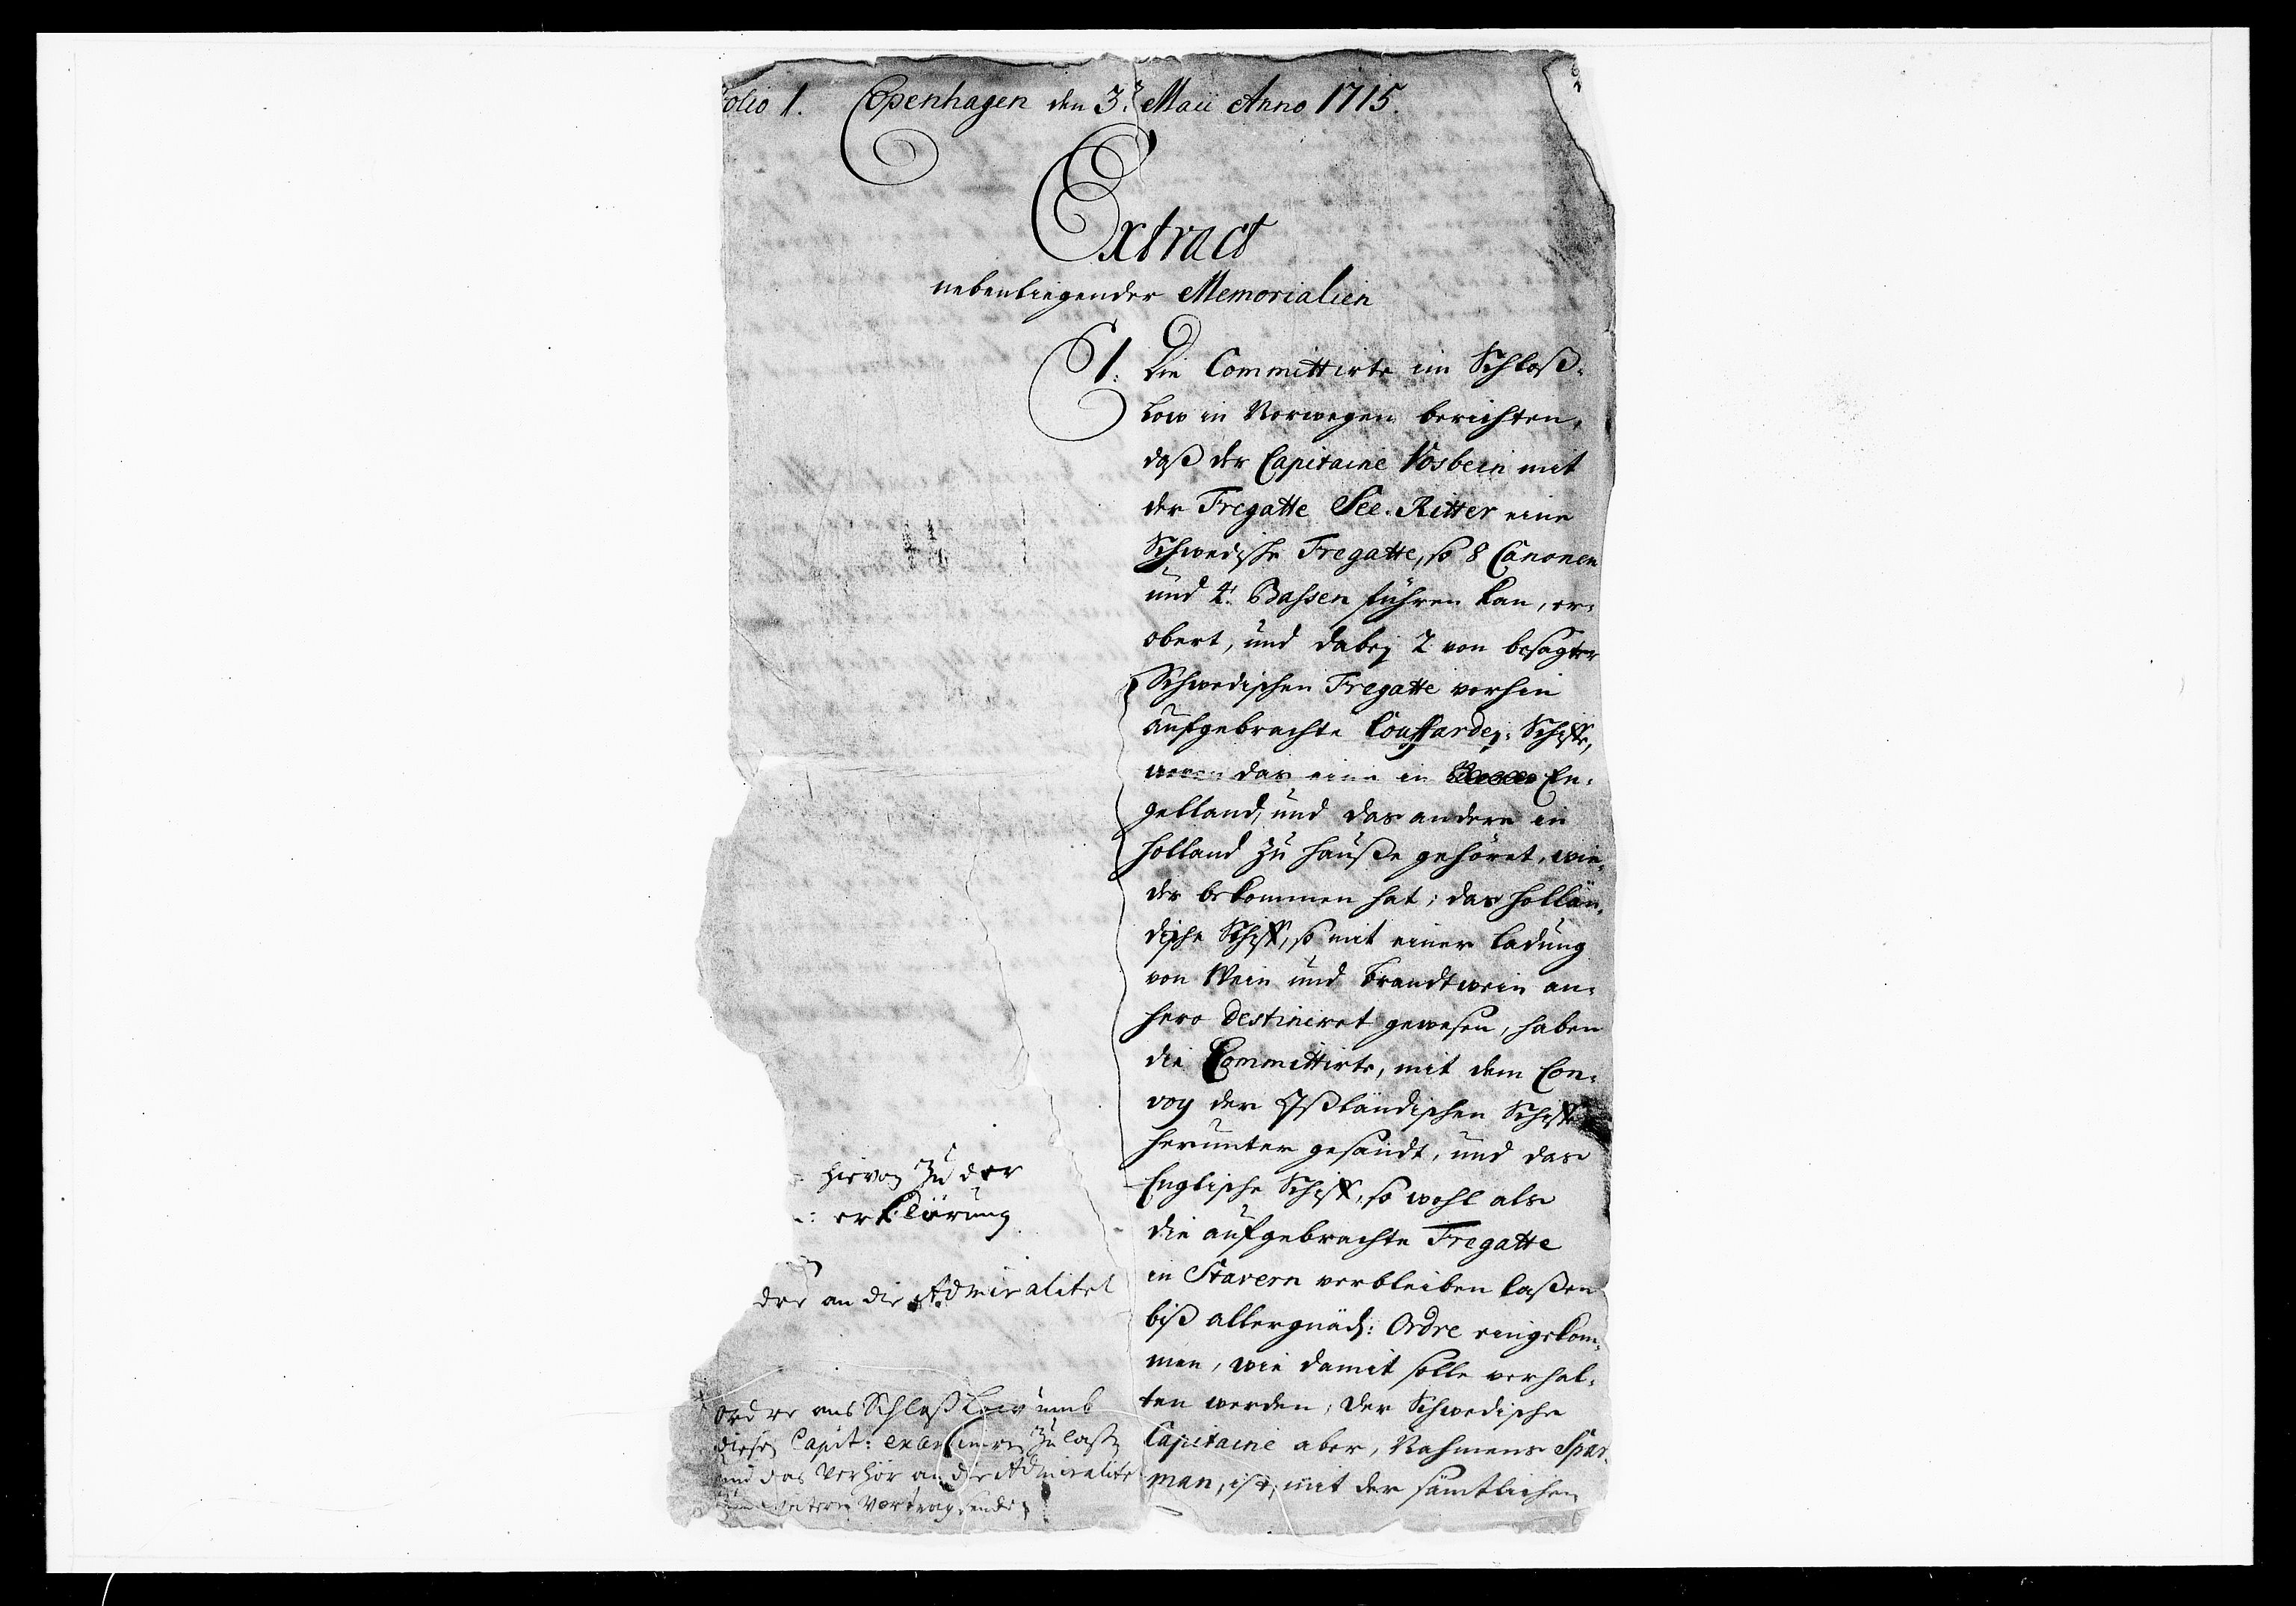 olio 1. Copenhagen den 3. Maii Anno 1715.
Extract
nebenliegender Memorialien
1. Die Committirte im Schloß-
Low in Norwegen berichten,
daß der Capitaine Vosbein mit
der Fregatte See-Ritter eine
Schwedische Fregatte, so 8 Canonen
und 4. Bassen führen kan, er-
obert, und dabey 2 von besagter
Schwedischen Fregatte vorhin
aufgebrachte Couffardey-Schiffe,
wovon das eine in En-
gelland, und das andere in
Holland zu Hauße gehöret, wie-
der bekommen hat; das Hollän-
dische Schiff, so mit einer Ladung
von Wein und Brandtwein an-
hero destiniret gewesen, haben
die Committirte, mit dem Con-
voy der Ißländischen Schiffe
herunter gesandt, und das
Englische Schiff, so wohl als
die aufgebrachte Fregatte
in Stavern verbleiben laßen
biß allergnäd: Ordre eingekom-
men, wie damit solle verhal-
ten werden; der Schwedische
Capitaine aber, Nahmens Spar-
man, ist, mit der sämtlichen
hievon zu der
erklärung
an die Admiralitet
Ordre ans Schloß Low umb
diesen Capit: examiniren zu laßen
und das Verhör an die Admiralitet
zum weitern Vortrag senden